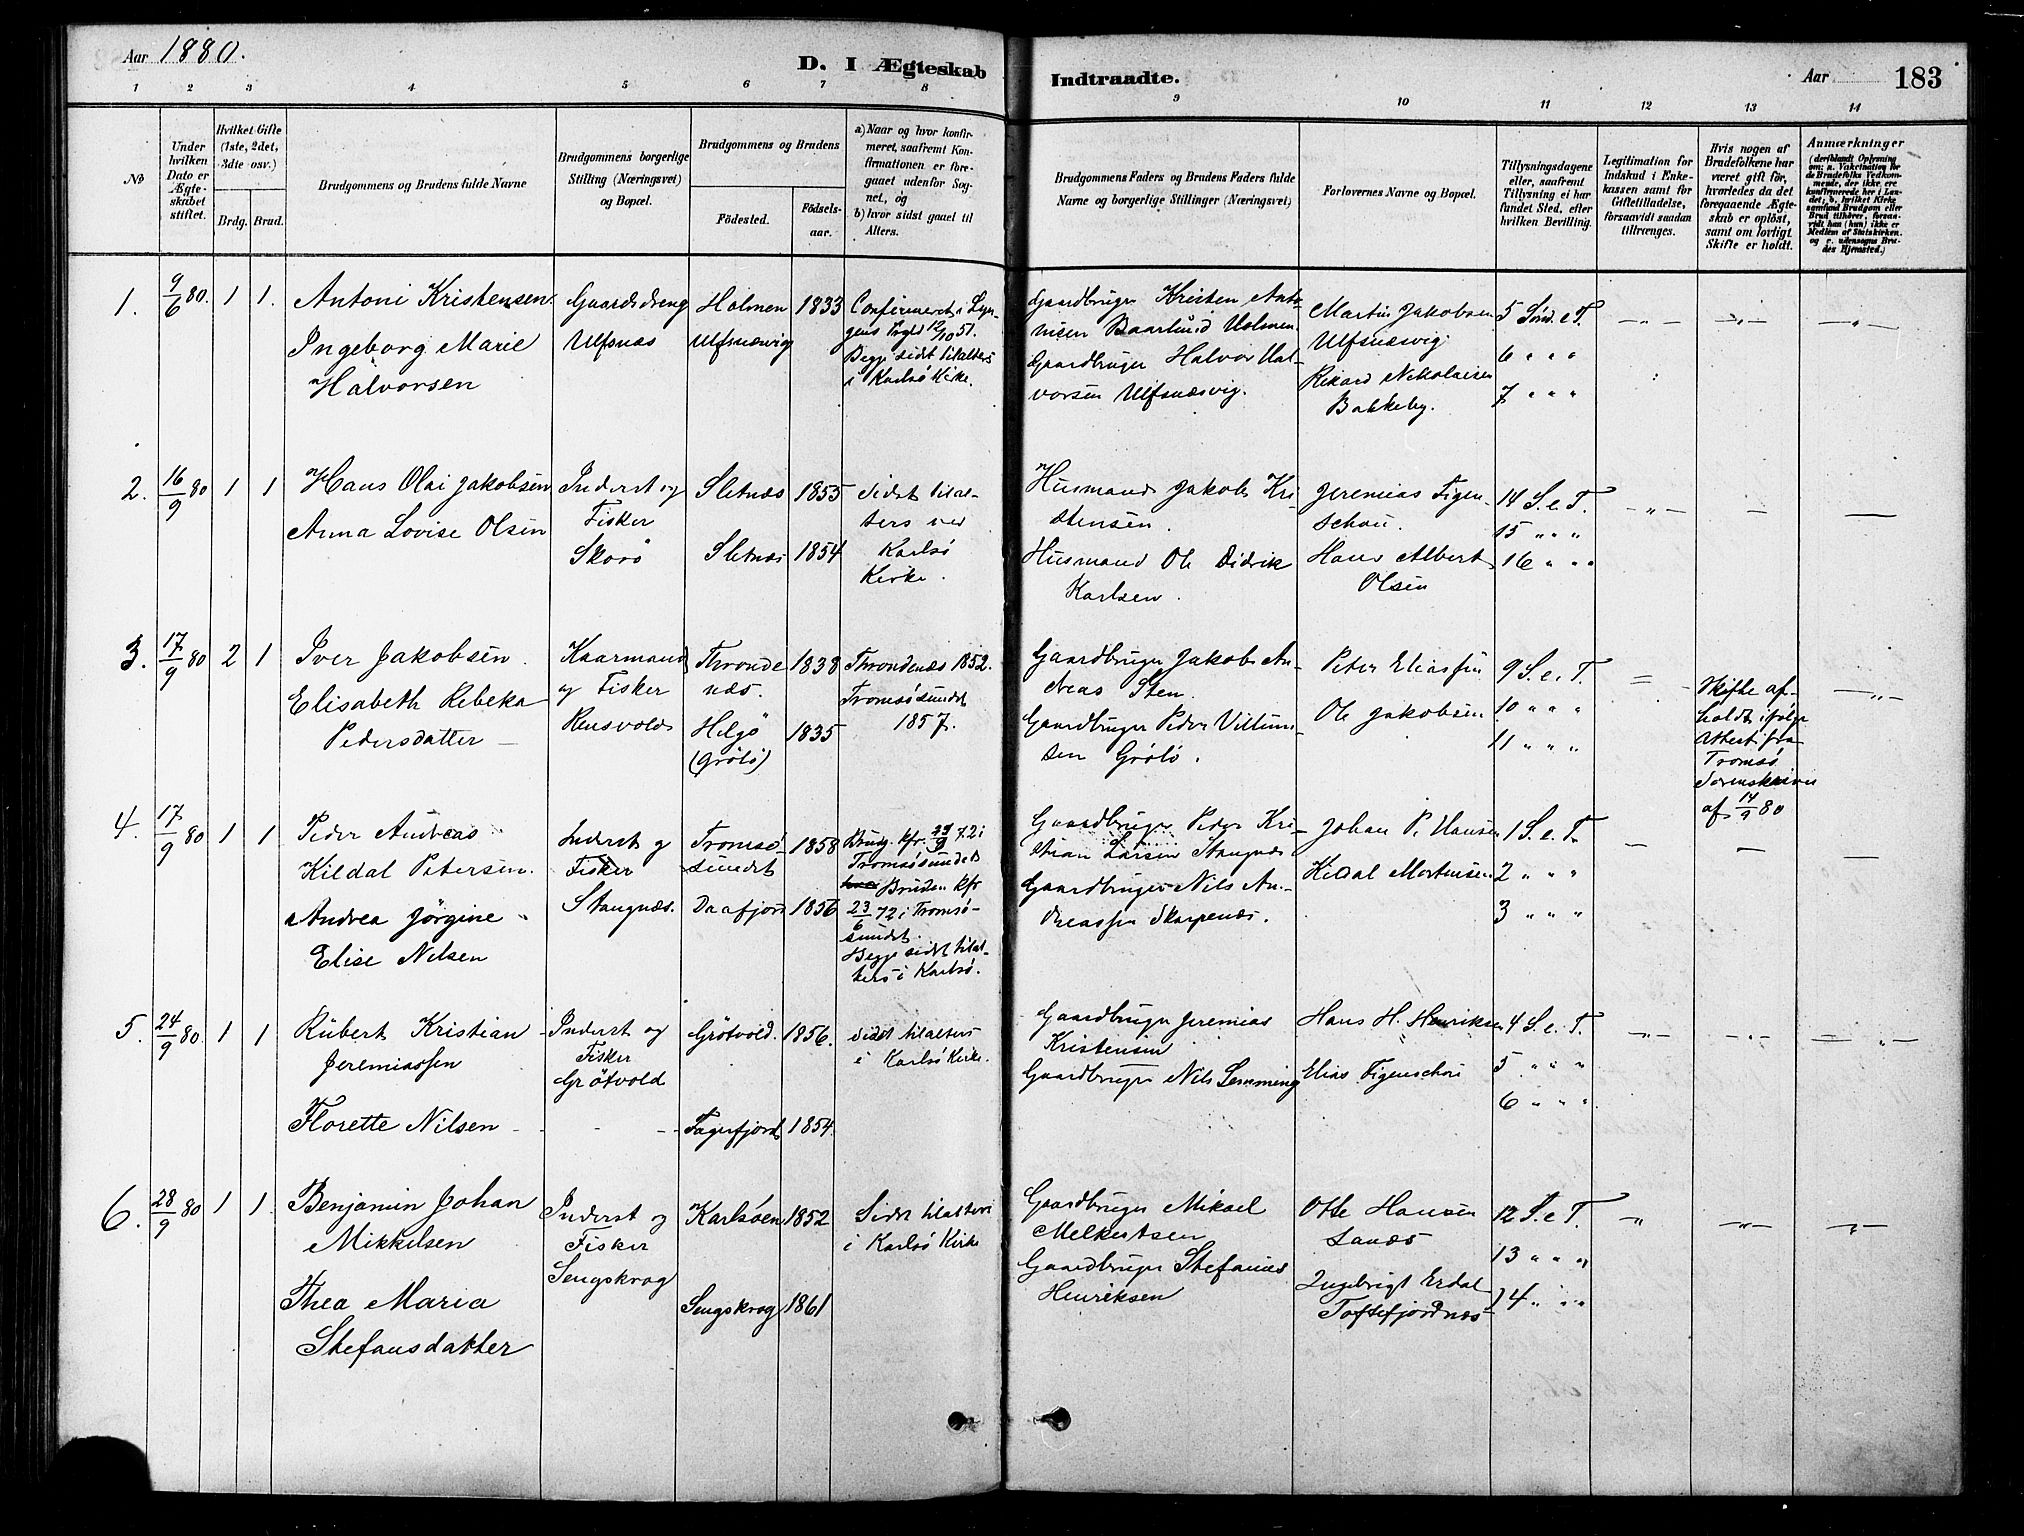 Aar 1880.
D. I Ægteskab
Indtraadte.
Aar
183
1 2 3 4 5 6 7 8 9 10 11 12 13 14
No
Under hvilken Dato er Ægteskabet stiftet.
Hvilket Gifte (1ste, 2det, 3dte osv.)
Brdg. Brud.
Brudgommens og Brudens fulde Navne
Brudgommens borgerlige Stilling (Næringsvei) og Bopæl.
Brudgommens og Brudens
Födested.
Födselsaar.
a) Naar og hvor konfirmeret, saafremt Konfirmationen er foregaaet udenför Sognet, og
b) hvor sidst gaaet til Alters.
Brudgommens Faders og Brudens Faders fulde Navne og borgerlige Stillinger (Næringsvei)
Forlovernes Navne og Bopæl.
Tillysningsdagene eller, saafremt Tillysning ei har fundet Sted, efter hvilken Bevilling.
Legitimation for Indskud i Enkekassen samt for Giftetilladelse, forsaavidt saadan tiltrænges.
Hvis nogen af Brudefolkene har været gift för, hvorledes da det foregaaende Ægteskab er oplöst, samt om lovligt Skifte er holdt.
Anmærkninger
1. 9/6 80. 1 1.
Antoni Kristensen
Ingeborg Marie
Halvorsen
Gaardsdreng
Ulfsnæs
Holmen 1833
Ulfsnæsvig
Confirmeret i Lyn-
gens Prgld 12/10 51.
Begge sidst tilalters
i Karlsö Kirke.
Gaardbruger Kristen Anto-
Holmen
Gaardbruger Halvor Hal-
vorsen Ulfsnæsvig.
Martin Jakobsen
Ulfsnæsvig
Rikard Nikolaisen
Bakkeby.
5 Sönd. e T.
6 " " "
7 " " "
2. 16/9 80 1 1
Hans Olai Jakobsen
Anna Lovise Olsen
Inderst og
Fisker
Skorö
Sletnæs 1855
Sletnæs 1854
Sidst tilal-
ters ved
Karlsö
Kirke.
Husmand Jakob Kri-
stensen.
Husmand Ole Didrik
Karlsen.
Jeremias Figen-
schou.
Hans Albert
Olsen
14 S. e T.
15 " " "
16 " " "
3. 17/9 80 2 1
Iver Jakobsen
Elisabeth Rebeka
Pedersdatter
Kaarmand
og Fisker
Rensvold
Thronde
næs. 1838
Helgö
(Grötö) 1835
Throndenæs 1852.
Tromsösundet
1857.
Gaardbruger Jakob An-
dreas Sten.
Gaardbruger Peder Villum-
sen Grötö.
Peter Eliassen
Ole Jakobsen
9 S. e. T.
10 " " "
11 " " "
Skifte af-
holdt ifölge
Attest fra
Tromsö
Sorenskriver
af 14/9 80
4. 17/9 80 1 1
Peder Andreas
Kildal Petersen.
Andrea Jörgine
Elise Nilsen
Inderst og
Fisker
Stangnæs.
Tromsö-
sundet 1858
Daafjord 1856
72 i
Tromsösundet
Bruden kfr
23/6 72 i Tromsö-
sundet.
Begge sidst tilal-
ters i Karlsö.
Gaardbruger Peder Kri-
stian Larsen Stangnæs
Gaardbruger Nils An-
dreassen Skarpenæs.
Johan P. Hansen
Kildal Mortensen
1 S. e. T.
2 " " "
3 " " "
5. 24/9 80 1 1
Rubert Kristian
Jeremiassen
Florette Nilsen
Inderst og
Fisker
Grötvold
Grötvold. 1856.
Fagerfjord 1854.
Sidst tilalters
i Karlsö Kirke.
Gaardbruger Jeremias
Kristensen
Gaardbruger Nils Lemming
Hans H. Henriksen
Elias Figenschou
4 S. e. T.
5 " " "
6 " " "
6. 28/9 80 1 1
Benjamin Johan
Mikkelsen
Thea Maria
Stefansdatter
Inderst og
Fisker
Sengskrog
Karlsöen 1852
Sengskrog 1861
Sidst tilalters
i Karlsö Kirke
Gaardbruger Mikael
Melkertsen
Gaardbruger Stefanus
Henriksen
Otte Hansen
Lanæs
Ingebrigt Erdal
Toftefjordnæs
12 S. e T.
13 " " "
14 " " "